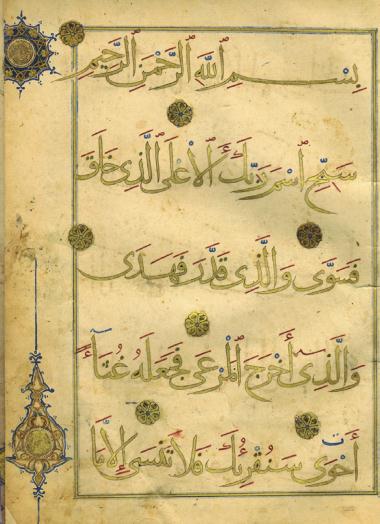 بِسْمِ اللَّهِ الرَّحْمَنِ الرَّحِيمِ
سَبِّحِ اسْمَ رَبِّكَ الْأَعْلَى الَّذِي خَلَقَ
فَسَوَّى وَالَّذِي قَدَّرَ فَهَدَى
وَالَّذِي أَخْرَجَ الْمَرْعَى فَجَعَلَهُ غُثَاءً
أَحْوَى سَنُقْرِئُكَ فَلَا تَنْسَى إِلَّا مَا